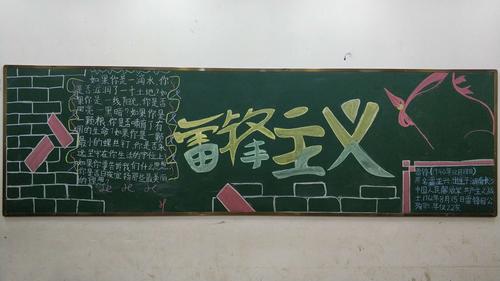 如果你是一滴水,你
是否滋润了一寸土地?如
果你是一线阳光,你是否
照亮一分黑暗?如果你是
一颗粮食,你是否哺育了有
用的生命?如果你是一颗
最小的螺丝钉,你是否永
远坚守在你生活的岗位上
如果你要告诉我们什么思想
你是否日夜宣扬那些最美丽
的理想
雷锋主义
雷锋(1940年12月18日)
原名雷正兴,出生于湖南长沙
中国人民解放军共产主义战
士,1962年8月15日雷锋因公
殉职,年仅22岁